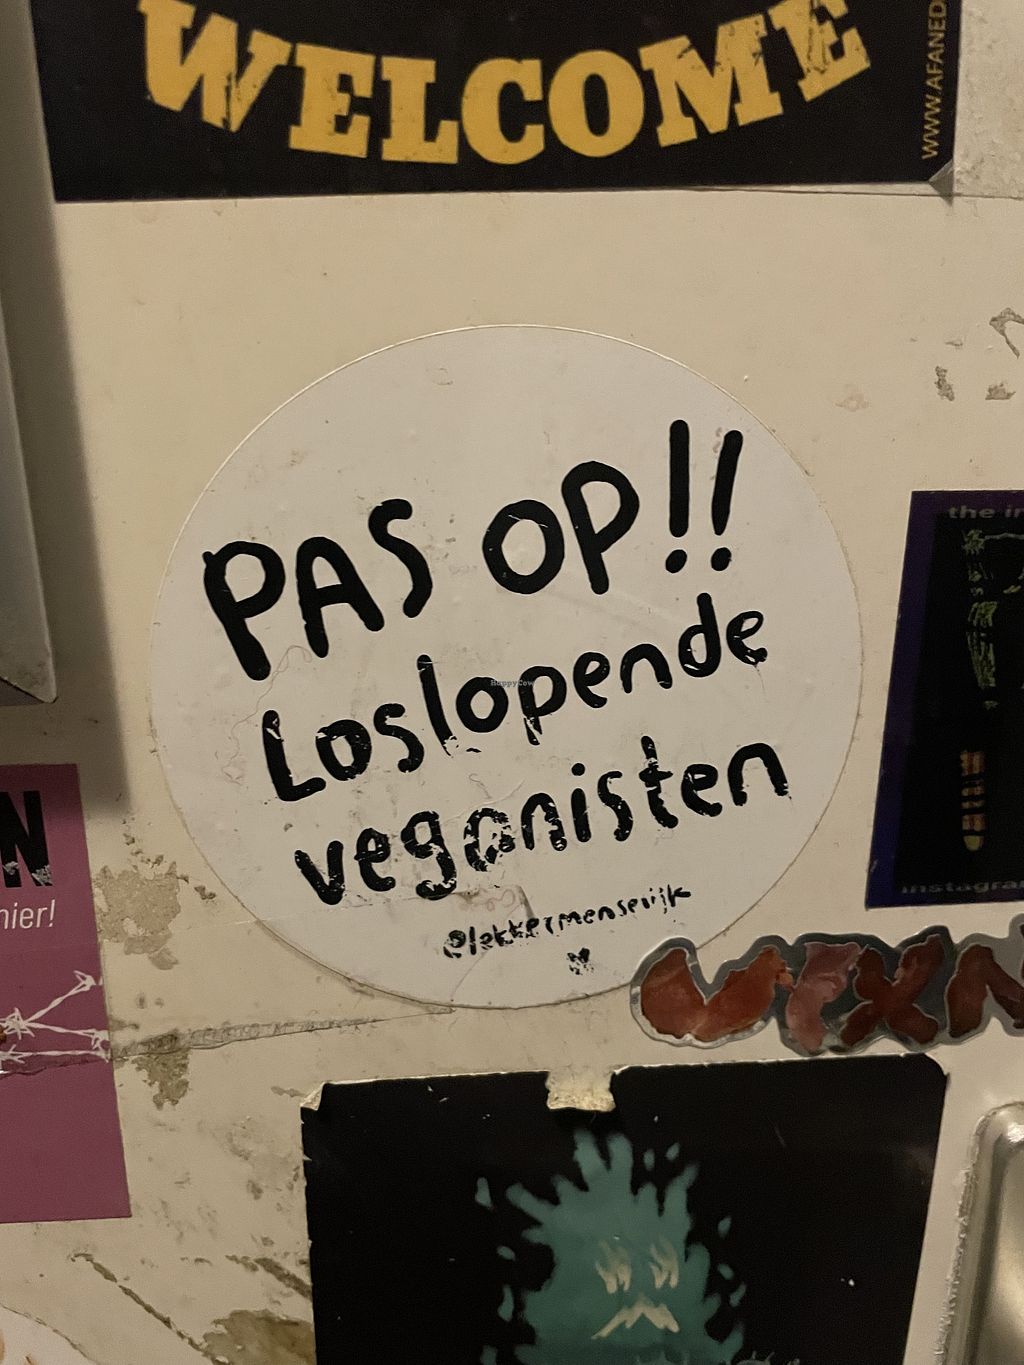 WELCOME
WWW.AFANED
PAS OP!!
Loslopende
veganisten
@lekkermensevijk
HappyCow
the in
instagra
N
hier!